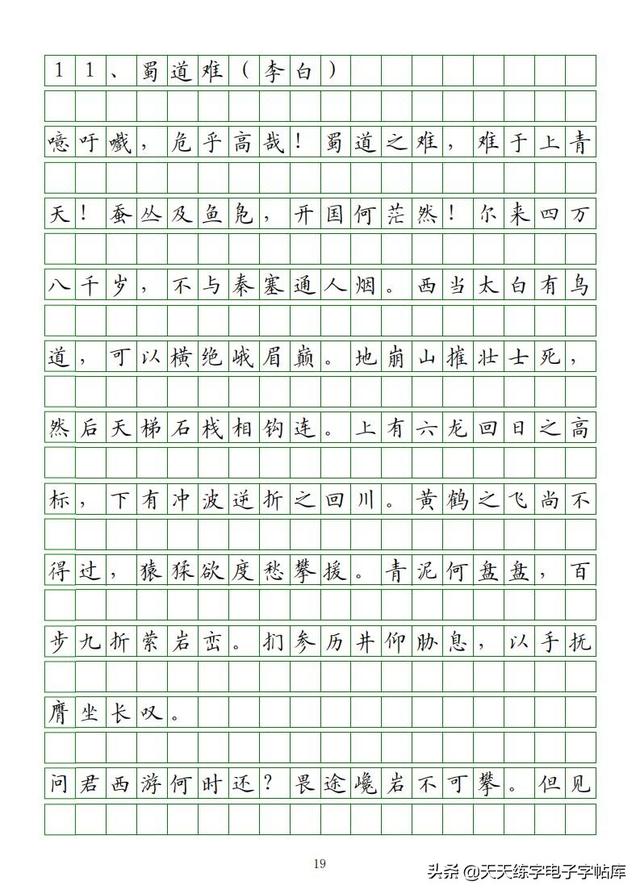 11、蜀道难（李白）
噫吁嚱，危乎高哉！蜀道之难，难于上青
天！蚕丛及鱼凫，开国何茫然！尔来四万
八千岁，不与秦塞通人烟。西当太白有鸟
道，可以横绝峨眉巅。地崩山摧壮士死，
然后天梯石栈相钩连。上有六龙回日之高
标，下有冲波逆折之回川。黄鹤之飞尚不
得过，猿猱欲度愁攀援。青泥何盘盘，百
步九折萦岩峦。扪参历井仰胁息，以手抚
膺坐长叹。
问君西游何时还？畏途巉岩不可攀。但见
19
头条@天天练字电子字帖库